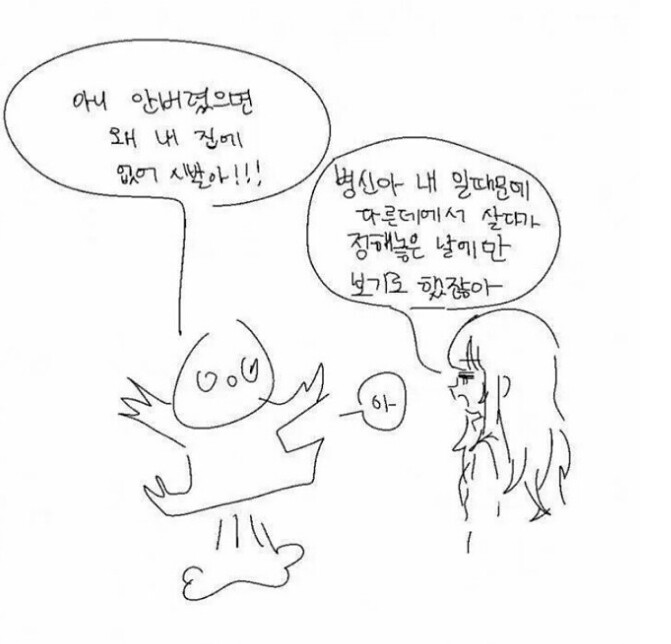 아니 안버렸으면
왜 내 집에
없어 시발아!!!
병신아 내 일때문에
다른데에서 살다가
정해놓은 날에만
보기로 했잖아
아